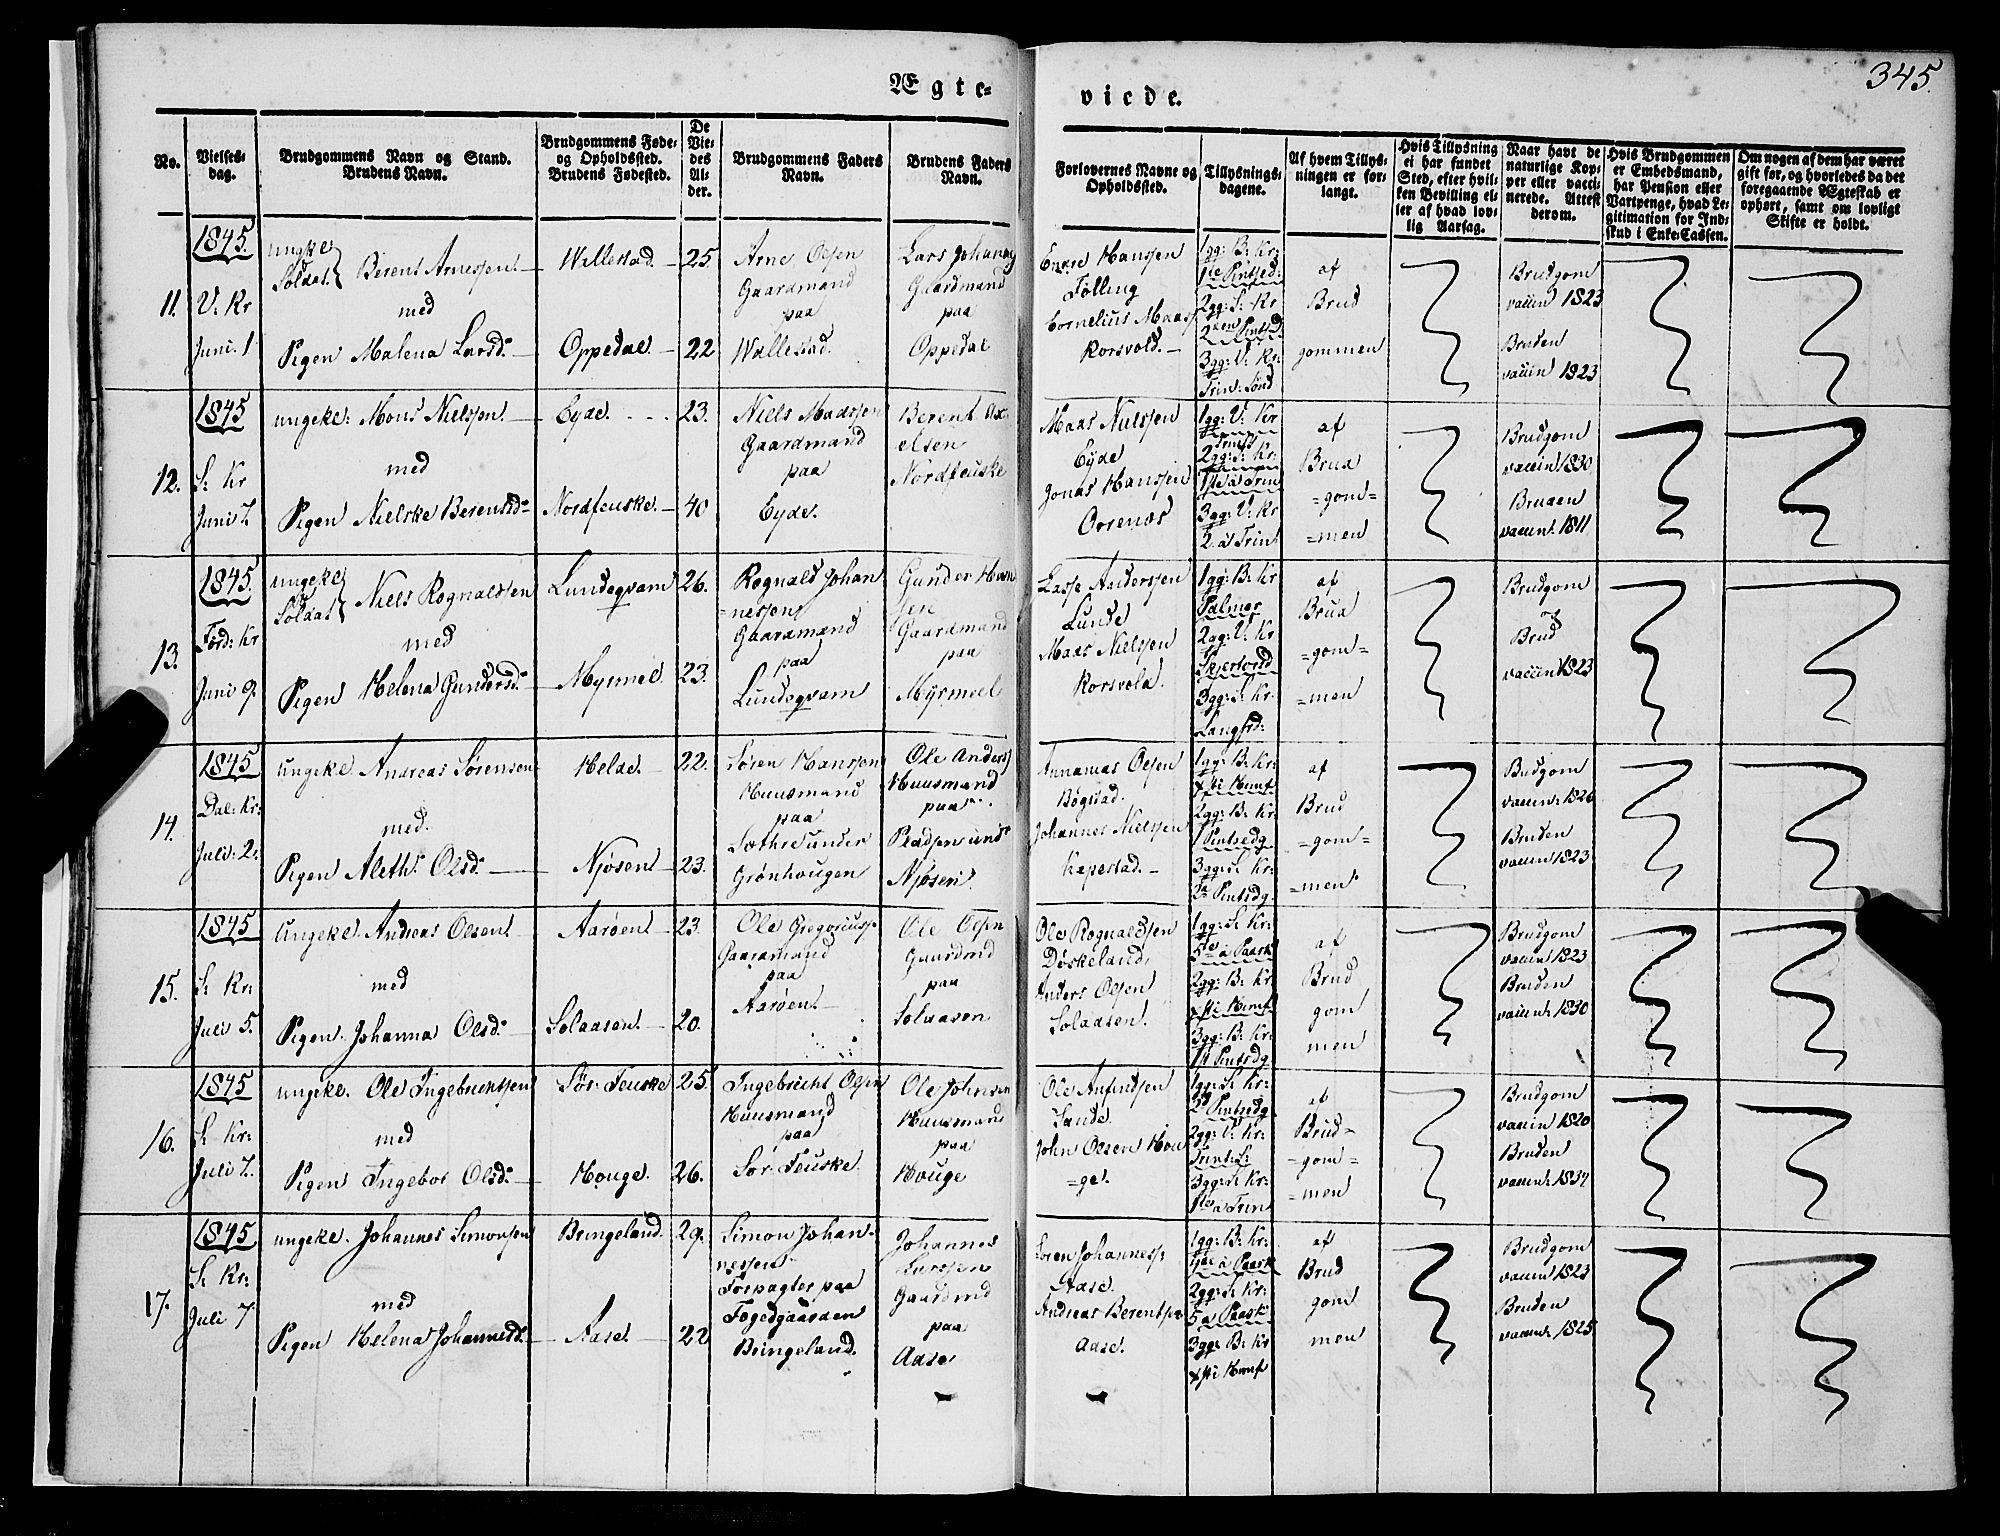 345.
Ægte-
viede.
No.
Vielses-
dag.
Brudgommens Navn og Stand.
Brudens Navn.
Brudgommens Føde-
og Opholdssted.
Brudens Fødested.
De
Vie-
des
Al-
der.
Brudgommens Faders
Navn.
Brudens Faders
Navn.
Forlovernes Navne og
Opholdssted.
Tillysnings-
dagene.
Af hvem Tillys-
ningen er for-
langt.
Hvis Tillysning
ei har fundet
Sted, efter hvil-
ken Bevilling el-
ler af hvad lov-
lig Aarsag.
Naar havt de
naturlige Kop-
per eller vacci-
nerede. Attest
derom.
Hvis Brudgommen
er Embedsmand,
har Pension eller
Vartpenge, hvad Le-
gitimation for Ind-
skud i Enke-Cassen.
Om nogen af dem har været
gift før, og hvorledes da det
foregaaende Ægteskab er
ophørt, samt om lovligt
Skifte er holdt.
11.
1845.
V. Kr
Juni 1
ungke
Soldat
Berent Arnessen
med
Pigen Malena Larsd:
Wallestad
Oppedal
25
22
Arne Olsen
Gaardmand
paa
Wallestad.
Lars Johannes
Gaardmand
paa
Oppedal
Hanssen
Følling
Cornelius Maass
Korsvold.
1gg: B: Kr:
1te Pintsed:
2gg: S: Kr
2den Pintsd
3gg: V: Kr:
Trin: Sønd
af
Brud
gommen
Brudgom
vaccin 1823
Bruden
vaccin 1823
12.
1845
S: Kr
Juni 7.
ungke: Mons Nielssen
med
Pigen Nielske Berentsd:
Eyde
Nordfeuske
23.
40
Niels Madssen
Gaardmand
paa
Eyde.
Berent Ax
elsen
Nordfeuske
Maas Nielssen
Eyde
Jonas Hanssen
Oorenæs
1gg: V: Kr
Trinit:
2gg: S: Kr:
1te a Trin
3gg: V: Kr
2 a Trin:
af
Brud
=gom=
=men
Brudgom
vaccin 1830
Bruden
vaccin: 1811
13.
1845.
Førd: Kr
Juni 9.
ungke
Soldat
Niels Rognaldssen
med
Pigen Helena Gundersd:
Lundeqvam
Myrmel
26.
23.
Rognald Johan
=nessen
Gaardmand
paa
Lundeqvam
Gunder Han
sen
Gaardmand
paa
Myrmeel
Lasse Anderssen
Lunde
Maas Nielssen
Korsvold.
1gg: B: Kr
Palmes
2gg: V: Kr
Skjertorsd
3gg: S: Kr:
Langfrd:
af
Brud
=gom=
=men
Brudgom
og
Brud
vaccin 1823
14.
1845
Dal: Kr:
Juli: 2.
ungke Andreas Sørensen
med.
Pigen Aleth: Olsd:
Helde
Njøsen
22.
23.
Søren Hanssen
Huusmand
paa
Sæthre under
Grønhougen
Ole Anders
Huusmand
paa
Pladsen und:
Njøsen
Annanias Olsen
Bøgstad.
Johannes Nielssen
Kapestad.
1gg: B: Kr:
2gg: B: Kr:
1 Pintsedg
3gg: S: Kr:
2n Pintsdg
af
Brud
=gom=
=men
Budgom
vaccin: 1826
Bruden
vaccin 1823
15.
1845
S: Kr:
Juli 5.
Ungke Andreas Olsen
med
Pigen Johanna Olsd:
Aarøen
Solaasen
23.
20.
Ole Gregorius
Gaardmand
paa
Aarøen
Ole Olsen
Gaardmd
paa
Solaasen
Ole Rognaldssen
Døskeland.
Anders Olsen
Solaasen.
1gg: S: Kr:
5te a Paask
2gg: B: Kr
3gg: B: Kr:
1te Pintsdg
af
Brud
gom
men
Brudgom
vaccin 1823
Bruden
vaccin: 1830
16.
1845
S: Kr:
Juli 7.
ungke. Ole Ingebrichtsen
med
Pigen Ingebor Olsd:
Sør: Feuske
Houge
25.
26.
Ingebricht Olsen
Huusmand
paa
Sør: Feuske
Ole Johnsen
Huusmand
paa
Houge
Ole Anfindsen
Sande.
John Olsen Hou
=ge.
1gg: S: Kr:
2d Pintsedg
2gg: V: Kr:
Trint: S:
3gg: S: Kr:
1te a Trin
af
Brud=
=gom=
=men
Brudgom
vaccin 1820
Bruden
vaccin: 1837
17.
1845
S: Kr:
Juli 7.
ungke. Johannes Simonsen
med
Pigen Helena Johannesd:
Bringeland
Aase
29.
22
Simon Johan=
nessen
Forpagter paa
Fogedgaarden
Bringeland.
Johannes
Larssen
Gaardmd
paa
Aase
Søren Johanness:
Aase.
Andreas Berentsen
Aase.
1gg: B: Kr:
4de a Paask
2gg: S: Kr:
5 a Paask
3gg: B: Kr
af
Brud
gom
men
Brudgom
vaccin 1823
Bruden
vaccin: 1825